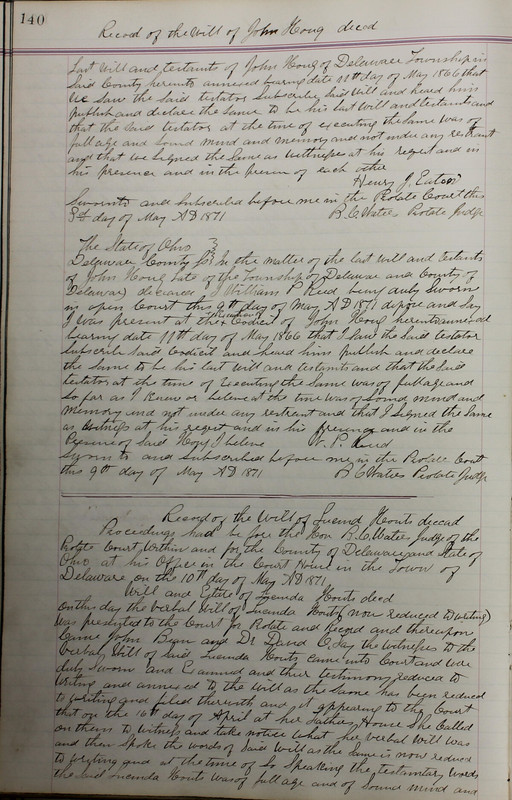 140
Record of the Will of John Hoag deced
Last Will and testants of John Hoag of Delaware Township in
Said County hereunto annexed bearing date 11th day of May 1866 that
We Saw the Said testator Subscribe Said Will and heard him
publish and declare the Same to be his last will and testants and
that the Said testator at the time of executing the Same was of
full age and Sound mind and memory and not under any restrant
and that we Signed the Same as Wittneses at his reqest and in
his presence and in the presence of each other
Henry J. Eaton
Swornto and Subscribed before me in the Probate Court this
9th day of May AD 1871 B. C. Waters Probate Judge
The State of Ohio
Delaware County SS In the matter of the last will and testants
of John Hoag Late of the Township of Delaware and County of
Delaware deceased I William P. Reid being duly Sworn
in open Court this 9th day of May AD 1871 depose and Say
I was present at the Execution of Codicil of John Hoag hereunto annexed
bearing date 11th day of May 1866 that I Saw the Said testator
Subscribe Said Codicil and heard him publish and declare
the Same to be his last will and testants and that the Said
testator at the time of Executing the Same was of full age and
So far as I knew or beleve at the time was of Sound mind and
Memory and not under any restrant and that I Signed the Same
as Witness at his reqest and in his presence and in the
Presence of Said Hoag I beleve W. P. Reid
Sworn to and Subscribed before me in the Probate Court
this 9th day of May AD 1871 B. C. Waters Probate Judge
Record of the Will of Lucind Houts decead
Proceedings had before the Hon B. C. Waters Judge of the
Probate Court Within and for the County of Delaware and State of
Ohio at his Office in the Court House in the Town of
Delaware on the 10th day of May AD 1871
Will and Estate of Lucenda Houts deced
On this day the Verbal Will of Lucenda Houts (now reduced to writing)
Was presented to the Court for Probate and Record and thereupon
Came John Bean and Dr David C. Fay the Witnesses to the
Verbal Will of Said Lucenda Houts came into Court and were
duly Sworn and Examined and their testimony reduced to
Writing and annexed to the Will as the Same has been reduced
to Writing and filed therewith and it appearing to the Court
that on the 16th day of April at her Fathers House She Called
on them to Witness and take notice What her Verbal Will was
and then Spoke the words of Said Will as the Same is now reduced
to Writing and at the time of So Speaking the testamentary words
the Said Lucenda Houts was of full age and of Sound mind and